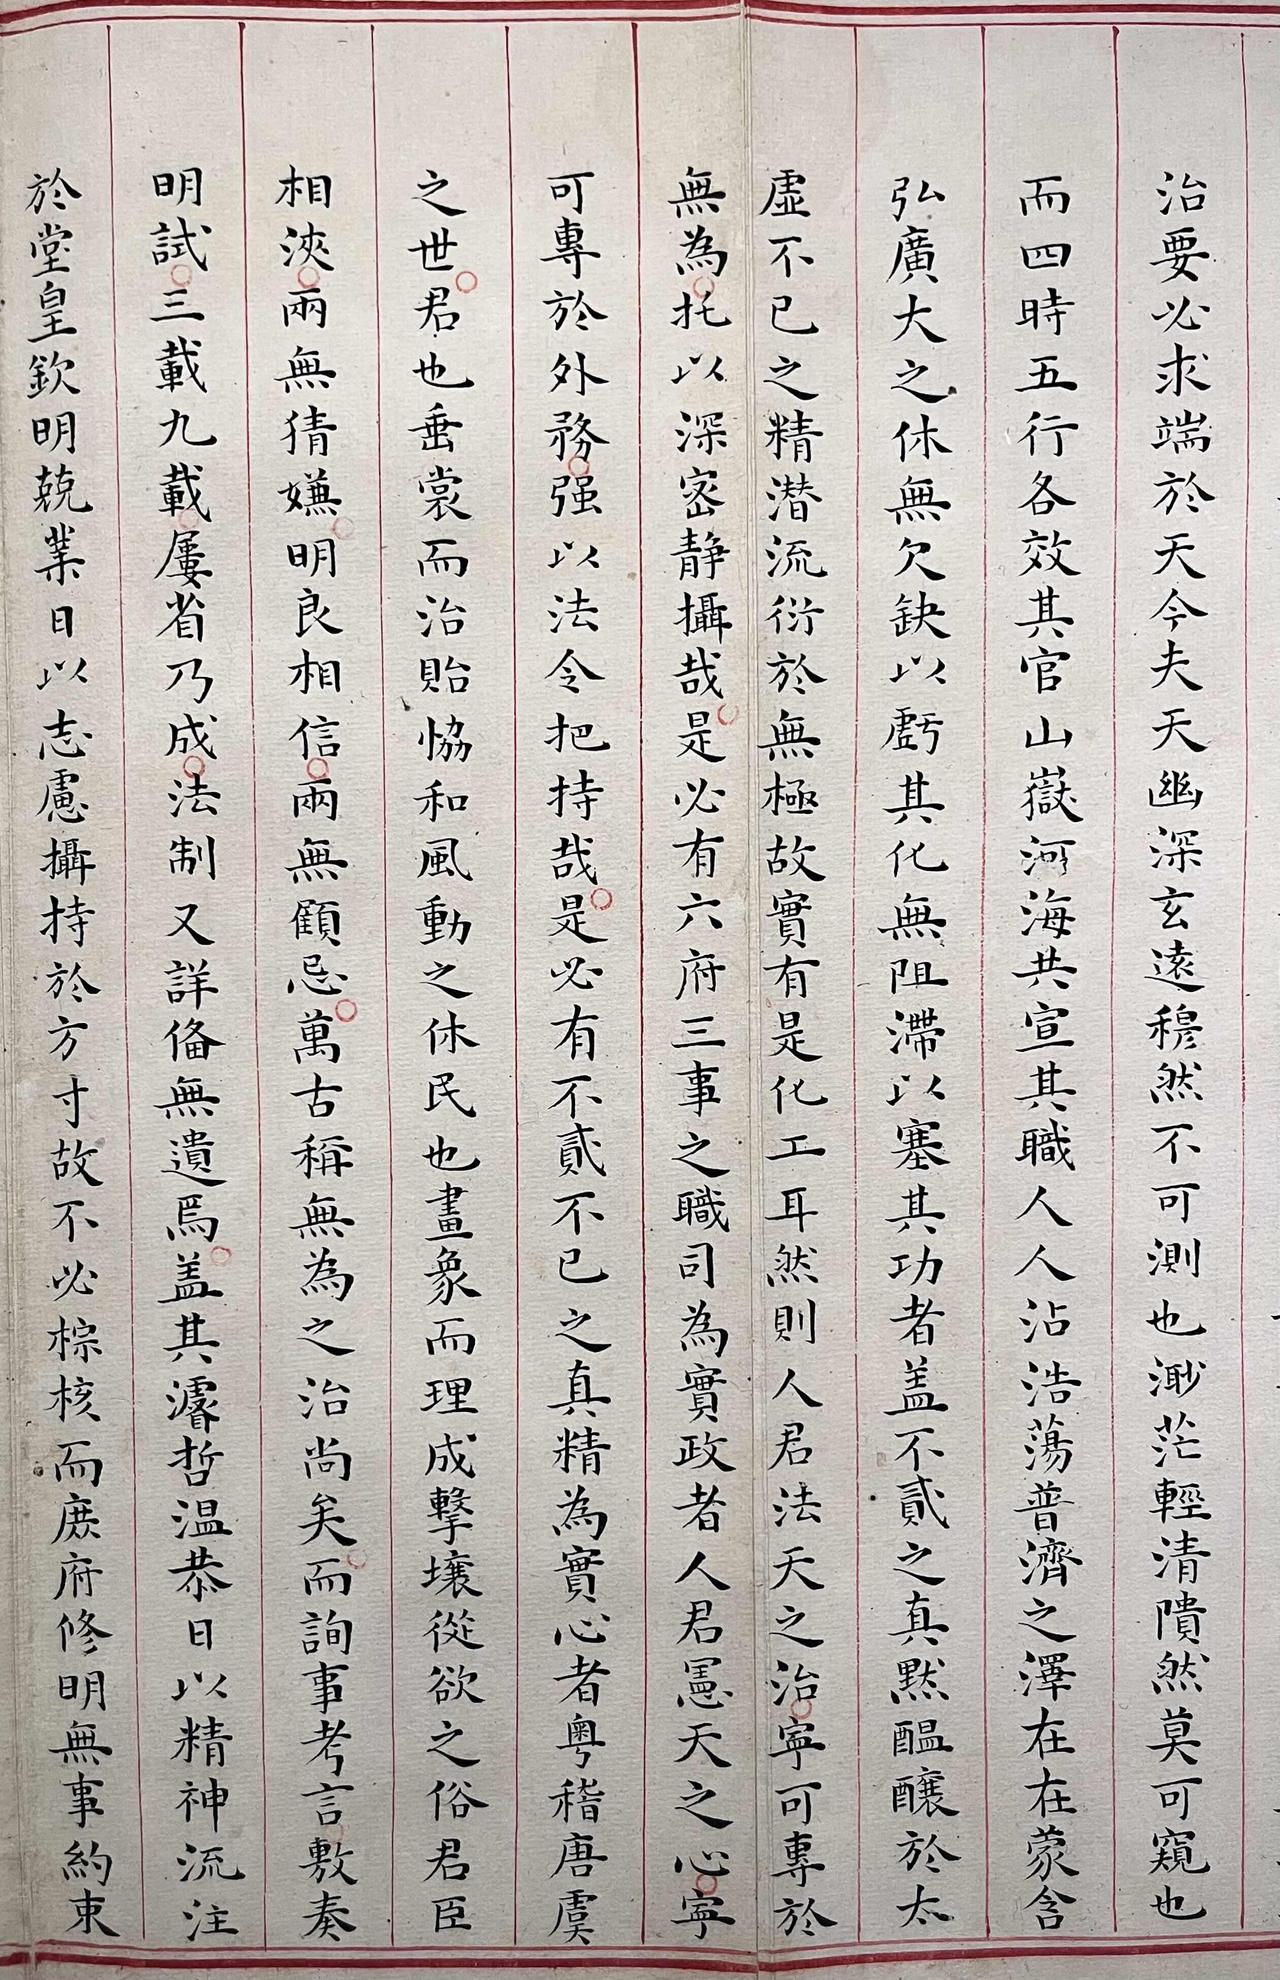 治要必求端於天今夫天幽深玄遠穆然不可測也渺茫輕清隤然莫可窺也
而四時五行各效其官山嶽河海共宣其職人人沾浩蕩普濟之澤在在蒙含
弘廣大之休無欠缺以虧其化無阻滯以塞其功者盖不貳之真默醖釀於太
虛不已之精潜流衍於無極故實有是化工耳然則人君法天之治寧可專於
無為托以深密静攝哉是必有六府三事之職司為實政者人君憲天之心寧
可專於外務强以法令把持哉是必有不貳不已之真精為實心者粤稽唐虞
之世君也垂裳而治貽恊和風動之休民也畫象而理成擊壤從欲之俗君臣
相浹兩無猜嫌明良相信兩無顧忌萬古稱無為之治尚矣而詢事考言敷奏
明試三載九載屢省乃成法制又詳俻無遺焉盖其濬哲温恭日以精神流注
於堂皇欽明兢業日以志慮攝持於方寸故不必棕核而庶府修明無事約束